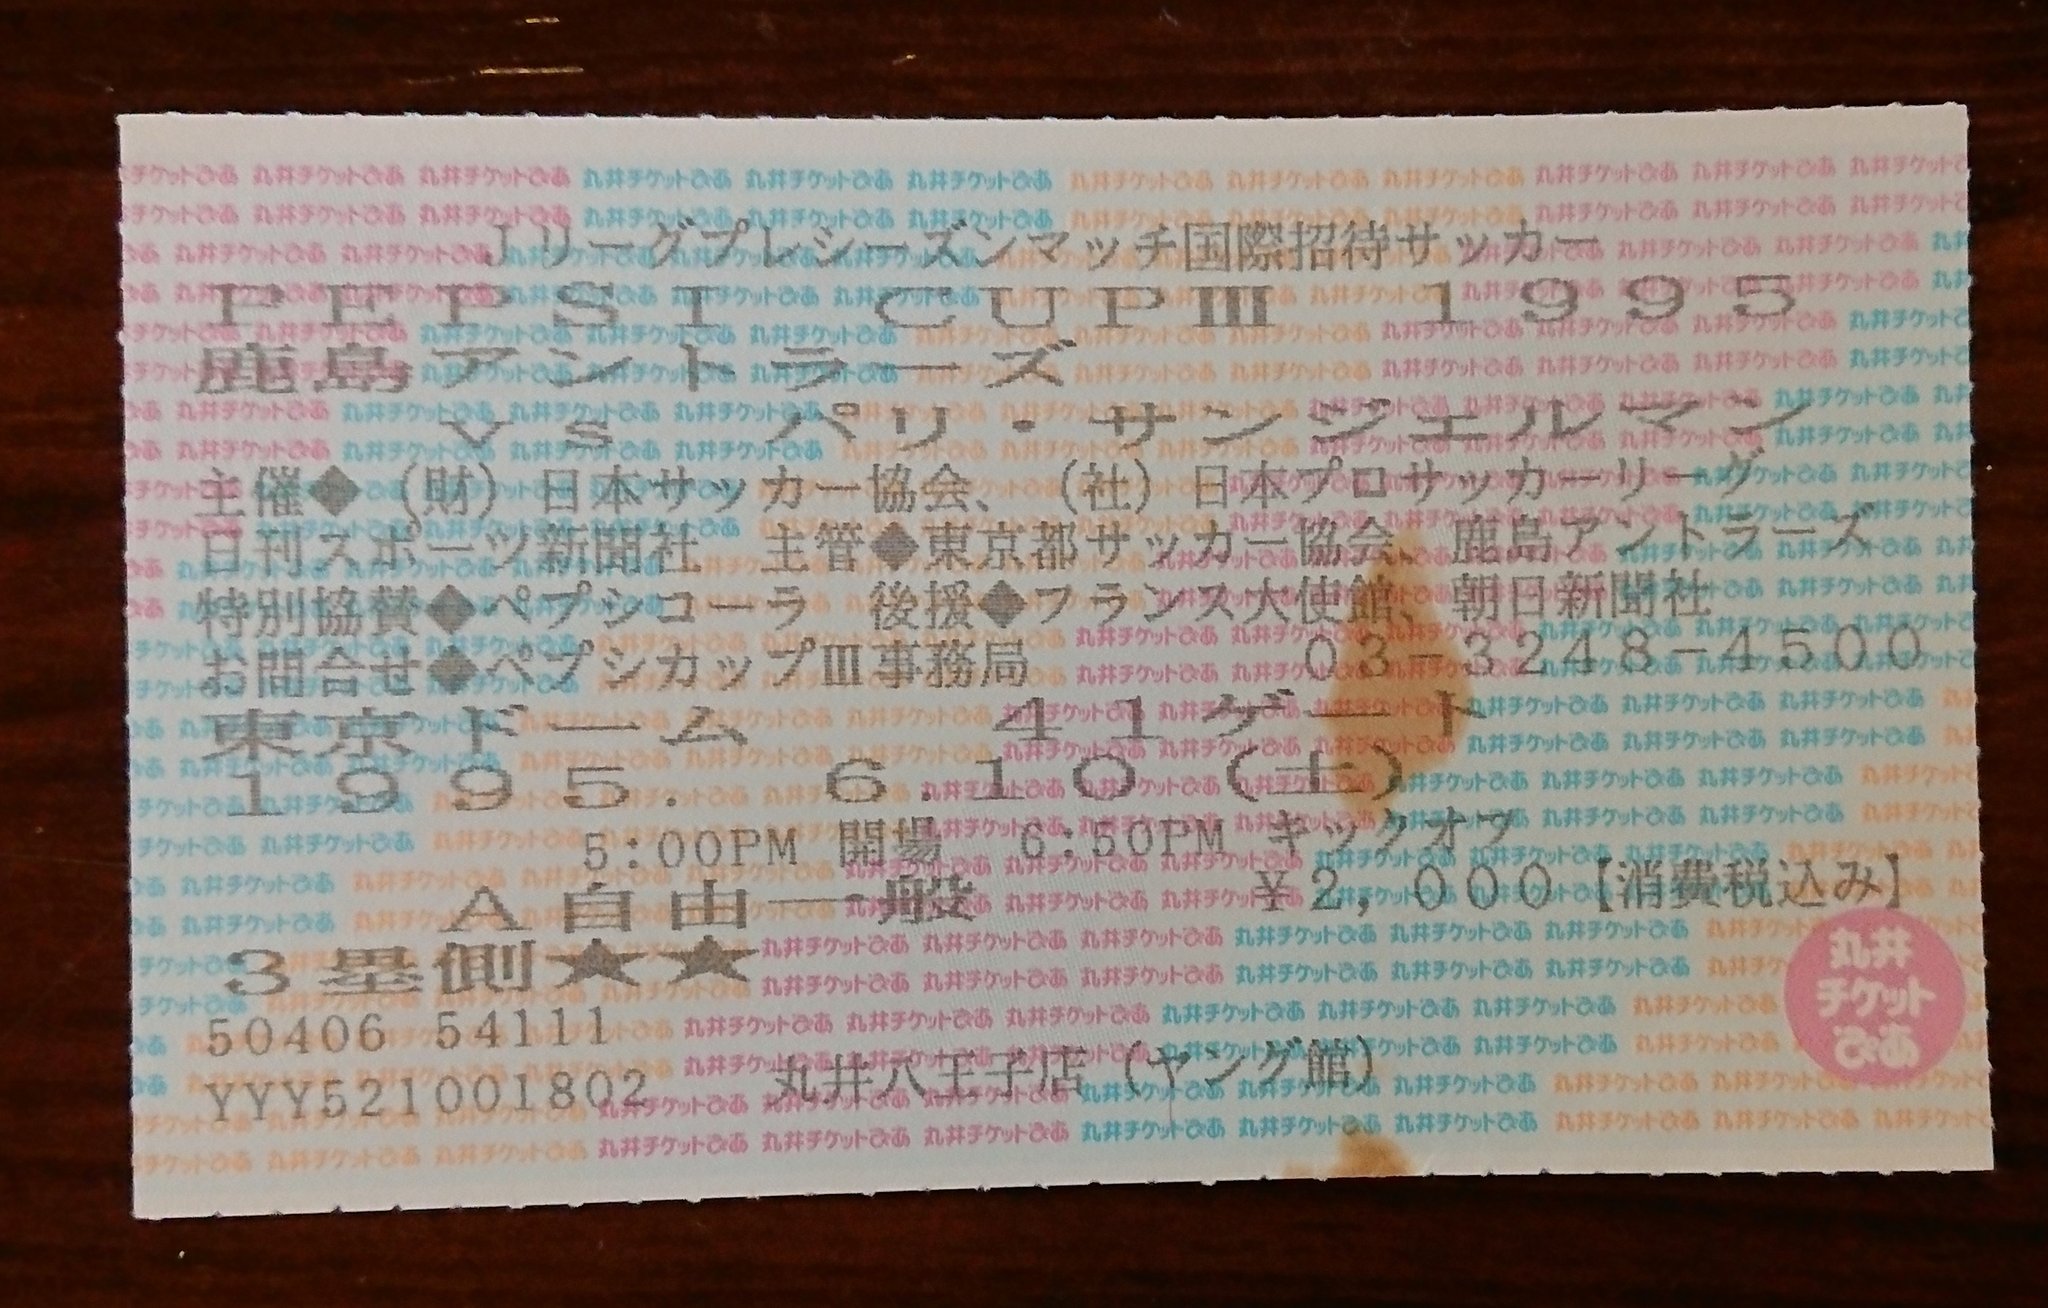 Jリーグプレシーズンマッチ国際招待サッカー
PEPSI CUPⅢ 1995
鹿島アントラーズ
vs パリ・サンジェルマン
主催◆（財）日本サッカー協会、（社）日本プロサッカーリーグ
日刊スポーツ新聞社 主管◆東京都サッカー協会、鹿島アントラーズ
特別協賛◆ペプシコーラ 後援◆フランス大使館、朝日新聞社
お問合せ◆ペプシカップⅢ事務局 03-3248-4500
東京ドーム 41ゲート
1995. 6.10（土）
5:00PM 開場 6:50PM キックオフ
A自由一般 ¥2,000【消費税込み】
3塁側★★
50406 54111
YYY521001802 丸井八王子店（ヤング館）
丸井
チケット
ぴあ